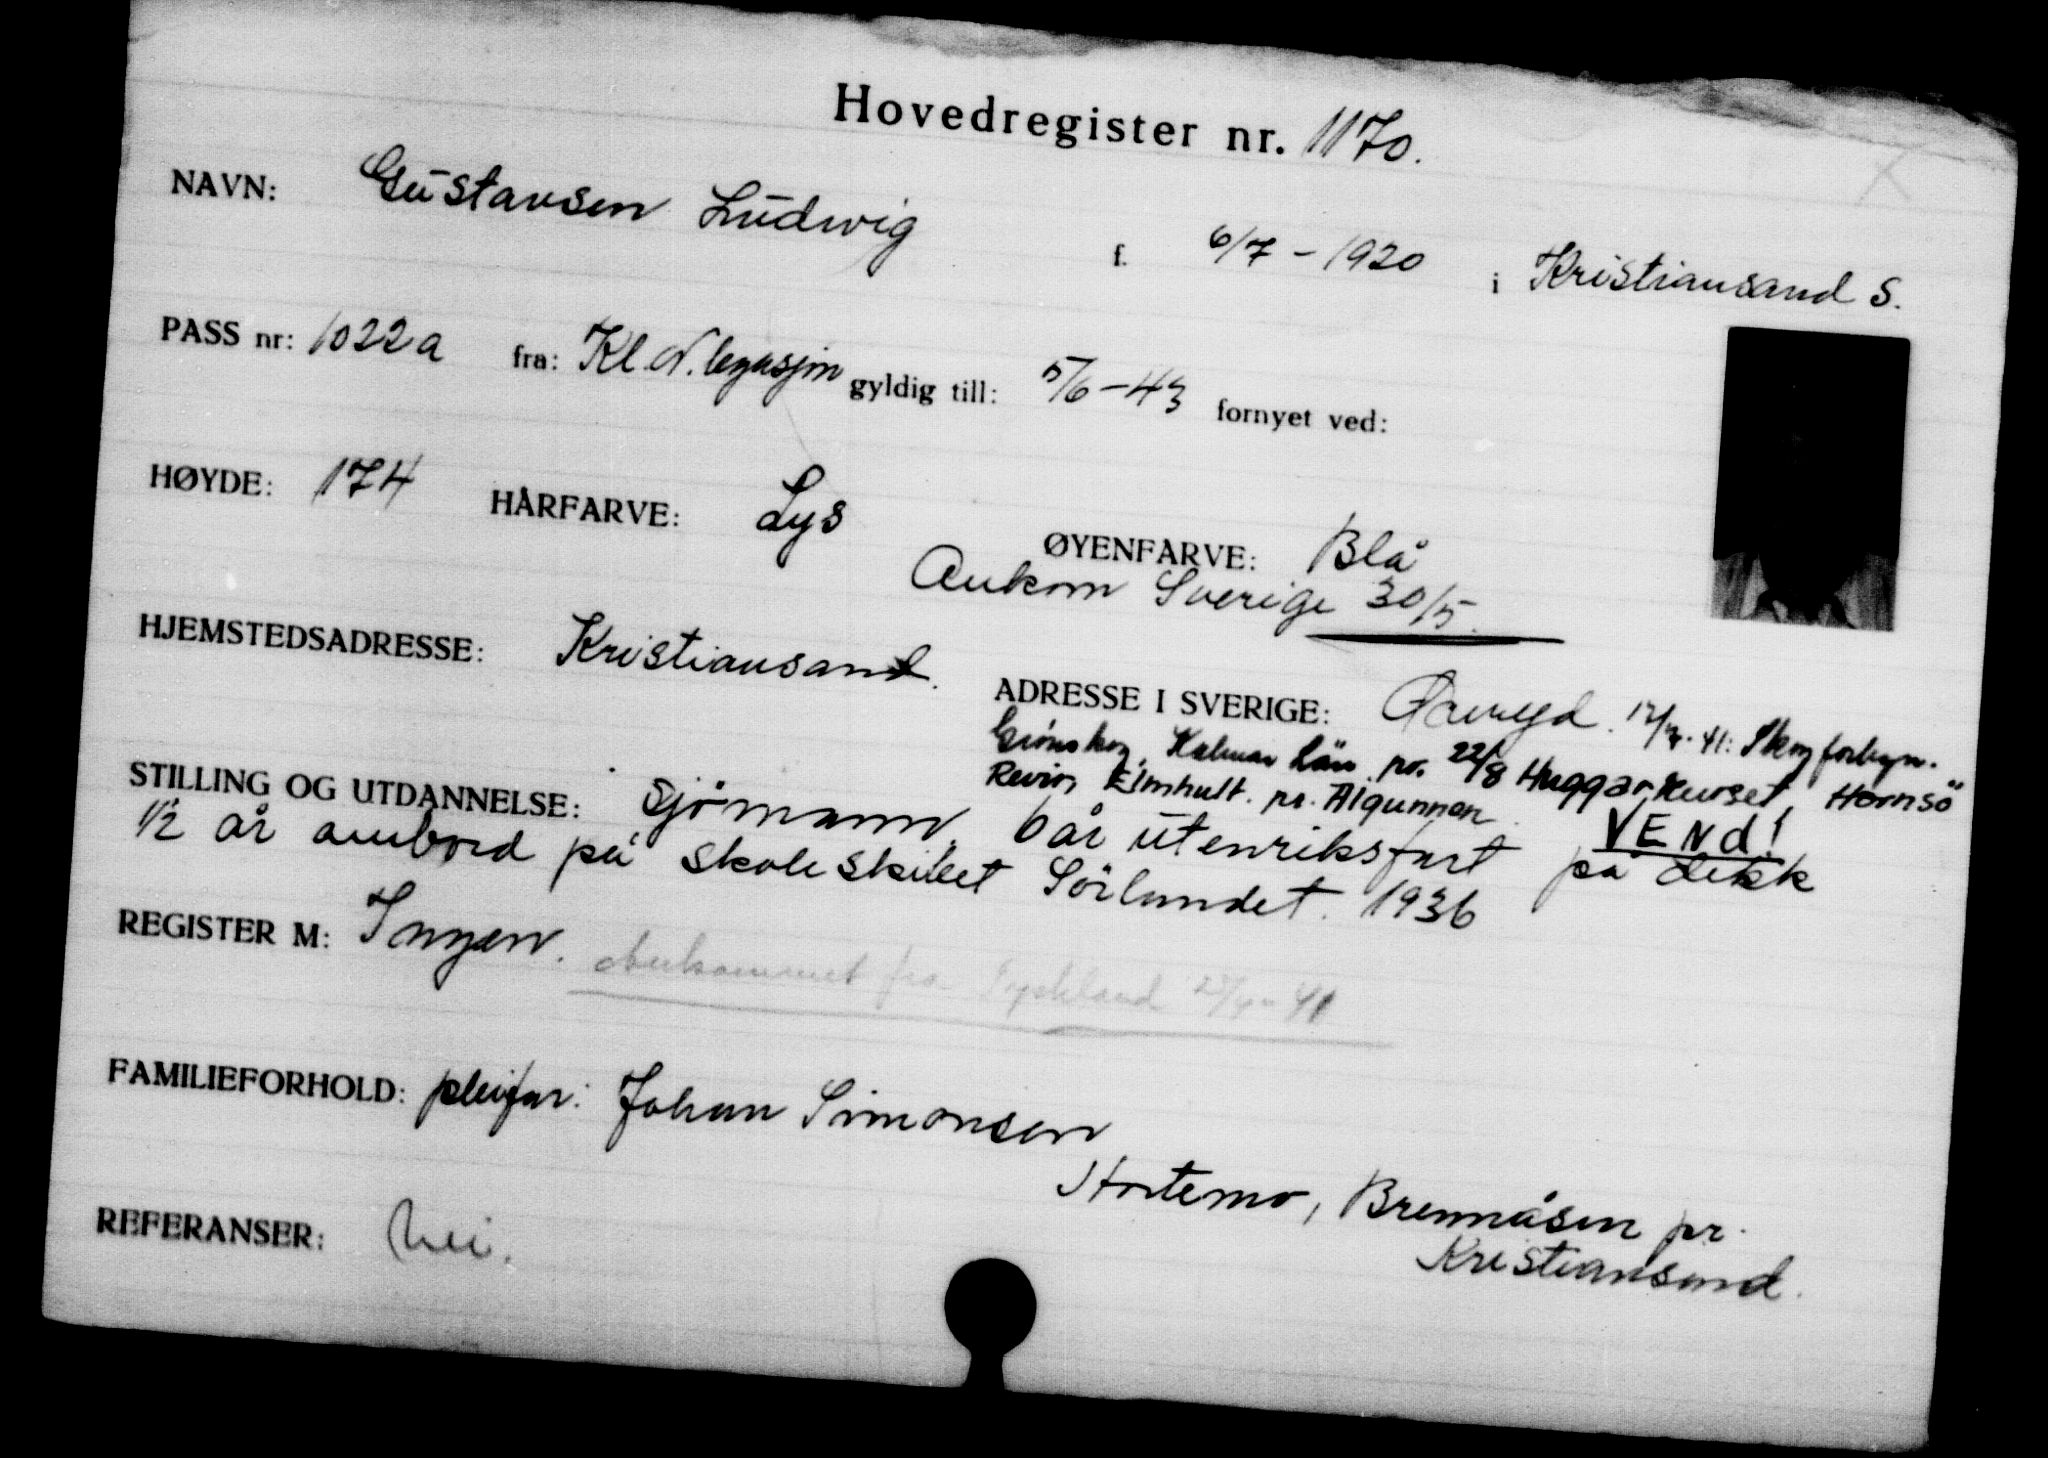 Hovedregister nr. 1170.
NAVN: Gustavsen Ludwig f. 6/7 - 1920 i Kristiansand S.
PASS nr: 1022a fra: Kl. N. legasjon gyldig till: 5/6 - 43 fornyet ved:
HØYDE: 174 HÅRFARVE: Lys ØYENFARVE: Blå
Ankom Sverige 30/5.
HJEMSTEDSADRESSE: Kristiansand. ADRESSE I SVERIGE: Öreryd. 41: Skogforlegn.
Grönskog, Kalmar Län. pr. 22/8 Huggarkurset, Hornsö
Revir, Elmhult. pr. Algunnen. VENd!
STILLING OG UTDANNELSE: Sjömann, 6 år utenriksfart på dekk
1/2 år ombord på skoleskibet Sörlandet. 1936
REGISTER M: Ingen. Ankommet fra Tyskland 41
FAMILIEFORHOLD: pleifar: Johan Simonsen
Hortemo, Brennåsen pr.
Kristiansand.
REFERANSER: Nei.